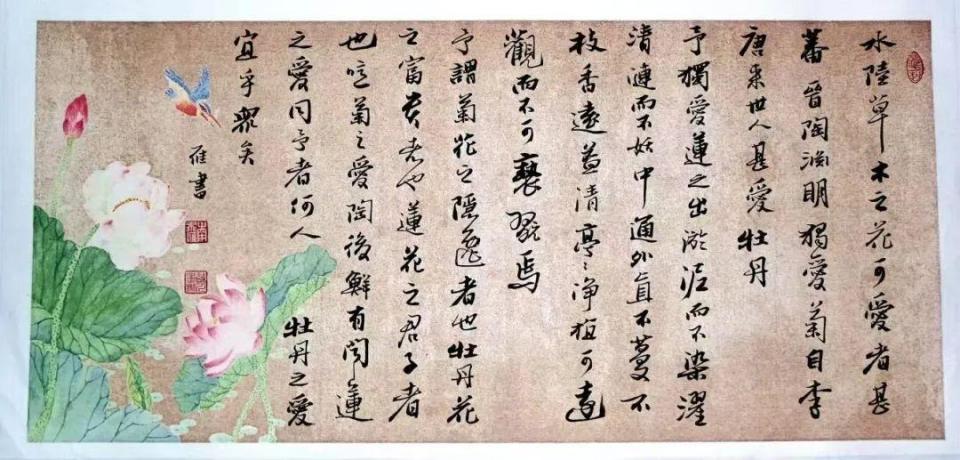 水陸草木之花可愛者甚
蕃晉陶淵明獨愛菊自李
唐来世人甚愛牡丹
予獨愛蓮之出淤泥而不染濯
清漣而不妖中通外直不蔓不
枝香遠益清亭〻净植可遠
觀而不可褻翫焉
予謂菊花之隱逸者也牡丹花
之富貴者也蓮花之君子者
也噫菊之愛陶後鮮有聞蓮
之愛同予者何人 牡丹之愛
宜乎眾矣
雁書